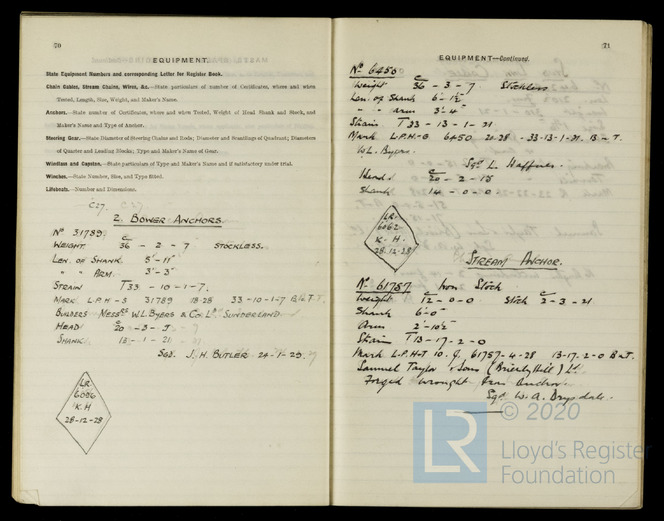 70
EQUIPMENT.
State Equipment Numbers and corresponding Letter for Register Book.
Chain Cables, Stream Chains, Wires, &c.—State particulars of number of Certificates, where and when
Tested, Length, Size, Weight, and Maker's Name.
Anchors.—State number of Certificates, where and when Tested, Weight of Head Shank and Stock, and
Maker's Name and Type of Anchor.
Steering Gear.—State Diameter of Steering Chains and Rods; Diameter and Scantlings of Quadrant; Diameters
of Quarter and Leading Blocks; Type and Maker's Name of Gear.
Windlass and Capstan.—State particulars of Type and Maker's Name and if satisfactory under trial.
Winches.—State Number, Size, and Type fitted.
Lifeboats.—Number and Dimensions.
C27.
2. BOWER ANCHORS.
No 31789
WEIGHT. c 36 - 2 - 7 STOCKLESS.
LEN. OF SHANK. 5'-11"
" " ARM. 3'-3"
STRAIN T33 - 10 - 1 - 7.
MARK L.P.H-S 31789 18-28 33-10-1-7 T.T.
BUILDERS MESSRS W.L. BYERS & CO. LD SUNDERLAND
HEAD c 20-3-
SHANK 15-1-21
SGD. J.H. BUTLER 24-1-29.
LR
6096
K.H
28-12-28
71
EQUIPMENT—Continued.
No 6450
Weight c 36 - 3 - 7 Stockless
Len. of Shank 6'-1½"
" " arm 3'-4"
Strain T33-13-1-21
Mark L.P.H-G 6450 21-28 -33-13-1-21. T.
W.L. Byers.
Sgd L. Heffner.
Head c -2-15
Shank 14-0-0
LR.
6062
K.H.
28-12-28
STREAM ANCHOR.
No. 61757 Iron Stock
Weight c 12-0-0 Stock c 2-3-21
Shank 6'-0"
Arm 2'-10½"
Strain T13-17-2-0
Mark L.P.H-T 10. 61757-4-28 13-17-2-0 B.&T.
Samuel Taylor & Sons (Brierly Hill) Ld
Forged wrought Iron Anchor.
Sgd W. A. Drysdale.
LR
© 2020
Lloyd's Register
Foundation